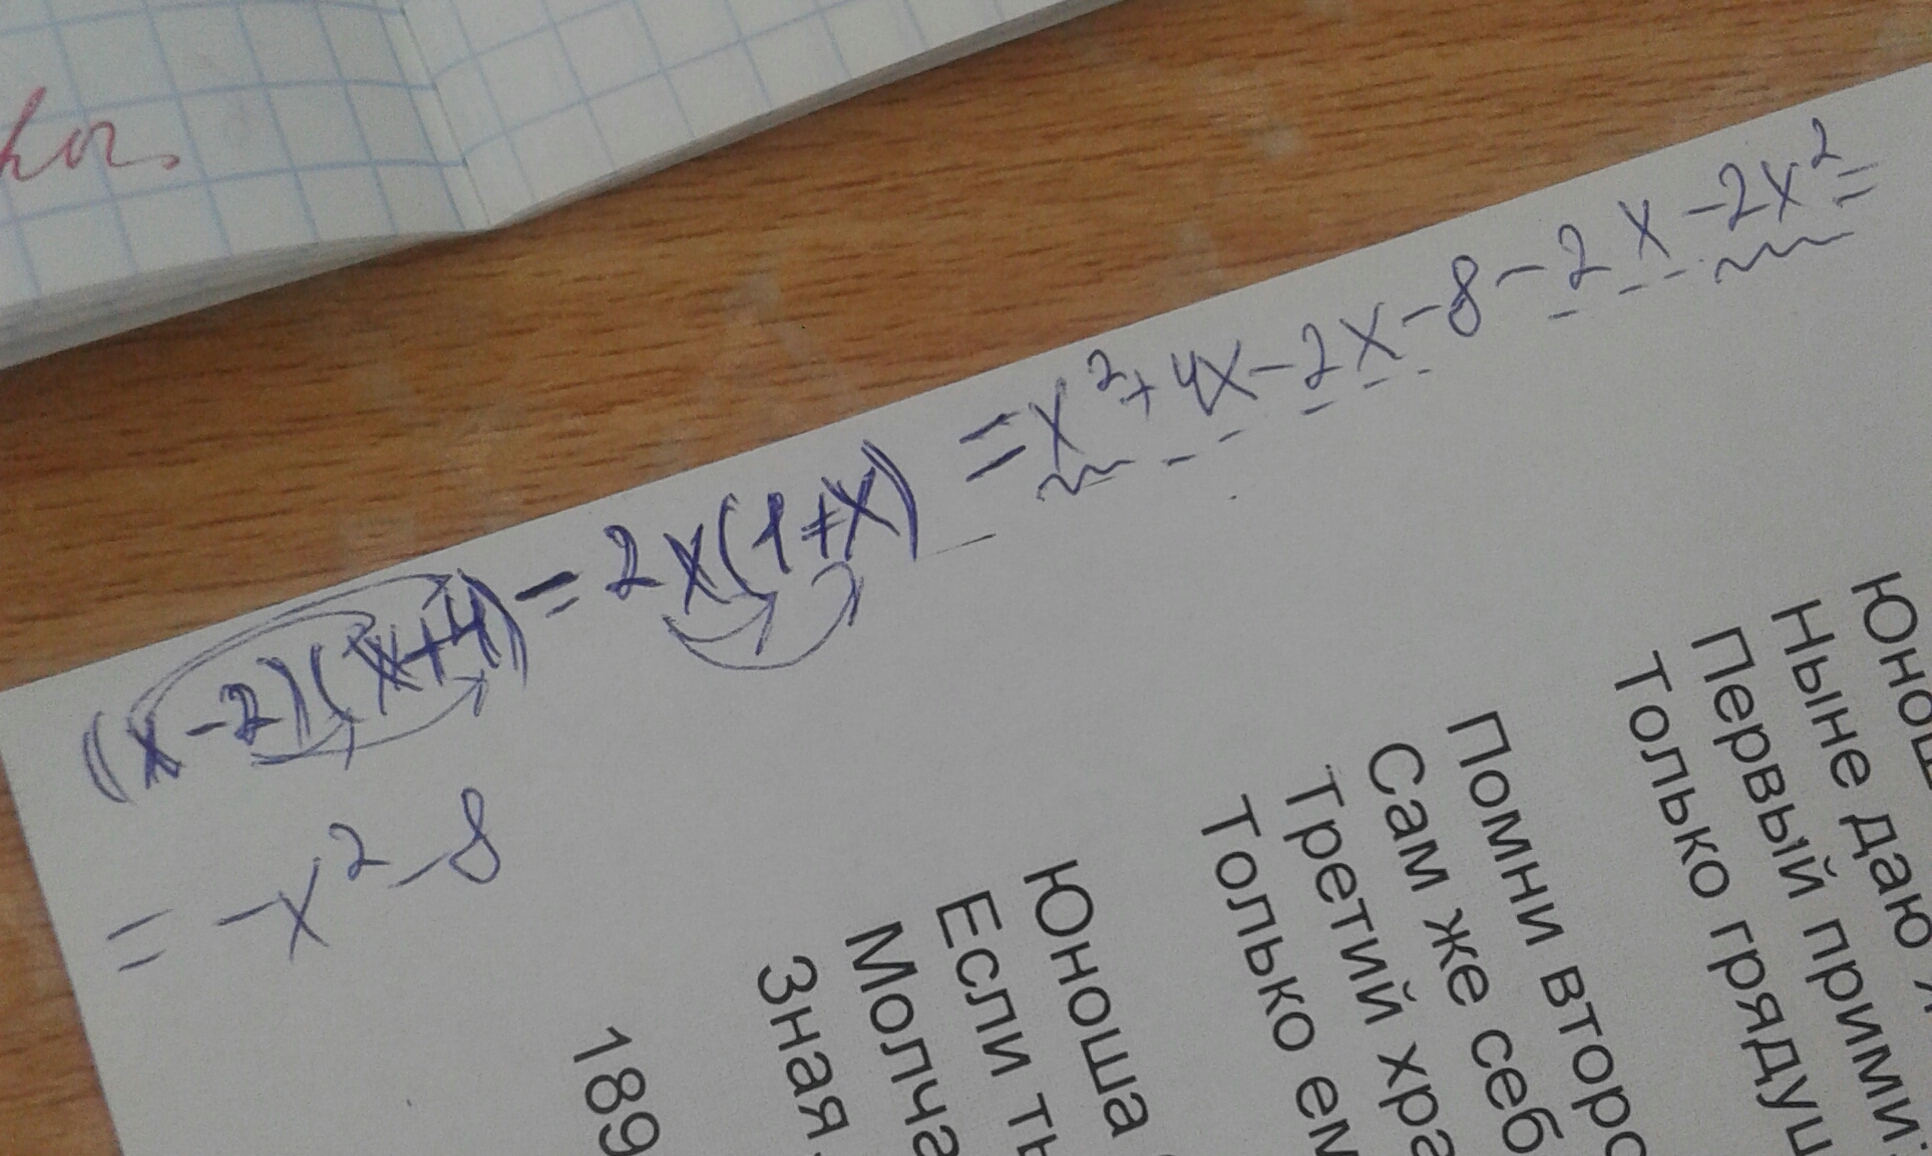 (x-2)(x+4)-2x(1+x)=x²+4x-2x-8-2x-2x²=
=-x²-8
Ныне даю
Первый прими:
Только гряду
Помни второ
Сам же себ
Третий хра
Только ем
Юноша
Если ть
Молча
Зная
189